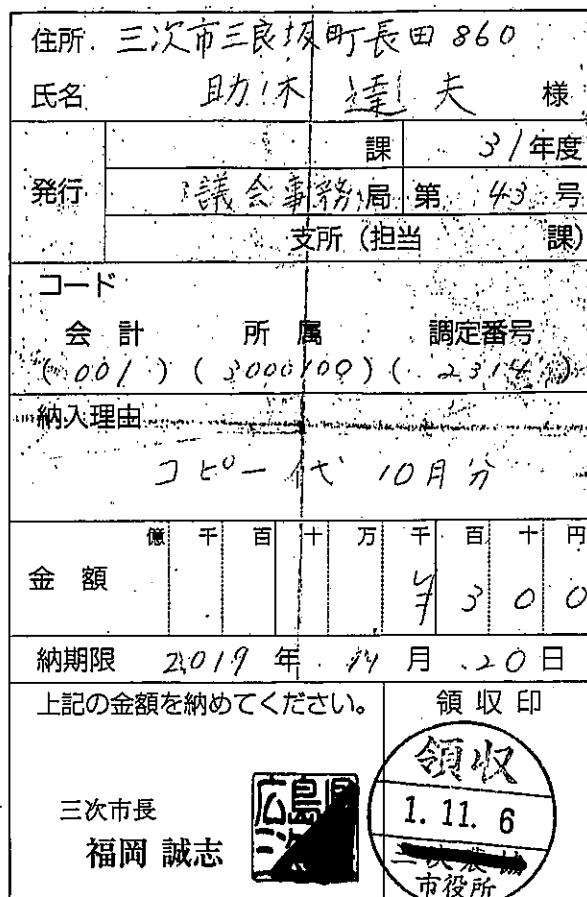 住所 三次市三良坂町長田860
氏名 助木 達夫 様
課 31年度
発行 議会事務局 第 43 号
支所(担当 課)
コード
会計 所属 調定番号
(001) (3000100) (2314)
納入理由
コピー代 10月分
億 千 百 十 万 千 百 十 円
金額 ¥300
納期限 2019年 11月 20日
上記の金額を納めてください。 領収印
三次市長
福岡 誠志
広島県
領収
1. 11. 6
市役所